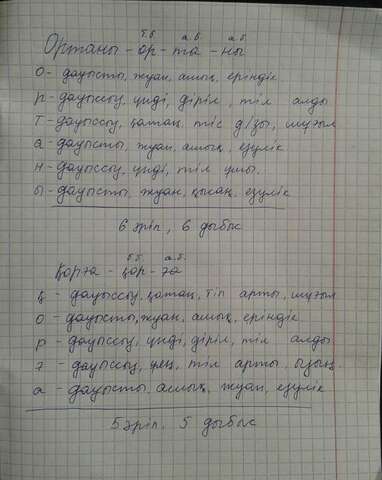 т.б. а.б. а.б.
Ортаны - ор - та - ны
О - дауысты, жуан, ашық, еріндік
р - дауыссыз, үнді, діріл, тіл алды
т - дауыссыз, қатаң, тіс д/зы, шұғыл
а - дауысты, жуан, ашық, езулік
н - дауыссыз, үнді, тіл ұшы.
ы - дауысты, жуан, қысаң, езулік
6 әріп, 6 дыбыс
б.б. а.б.
қорға - қор - ға
қ - дауыссыз, қатаң, тіл арты, шұғыл
о - дауысты, жуан, ашық, еріндік
р - дауыссыз, үнді, діріл, тіл алды
ғ - дауыссыз, ұяң, тіл арты, ызың
а - дауысты, ашық, жуан, езулік
5 әріп, 5 дыбыс